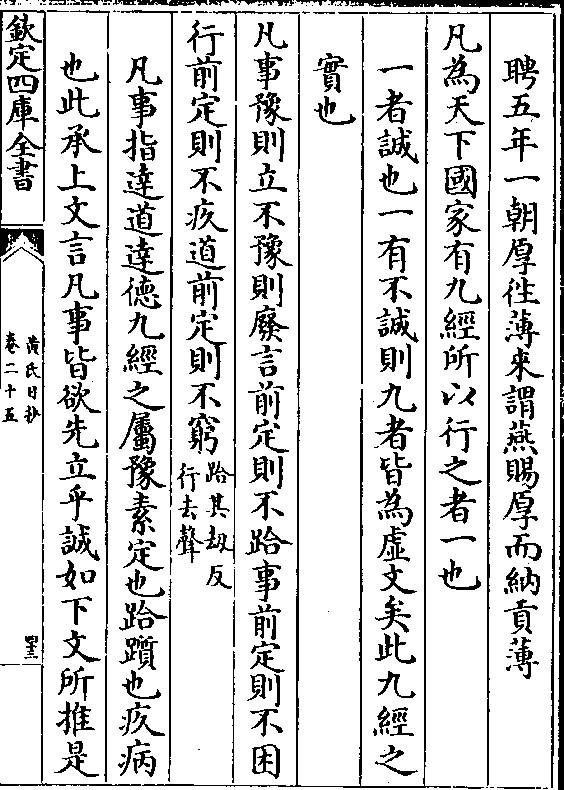 聘五年一朝厚徃薄來謂燕賜厚而納貢薄
凡為天下國家有九經所以行之者一也
一者誠也一有不誠則九者皆為虚文矣此九經之
實也
凡事豫則立不豫則廢言前定則不跲事前定則不困
行前定則不疚道前定則不窮
跲其刼反
行去聲
凡事指達道達德九經之屬豫素定也跲躓也疚病
也此承上文言凡事皆欲先立乎誠如下文所推是
欽定四庫全書
黄氏日抄
卷二十五